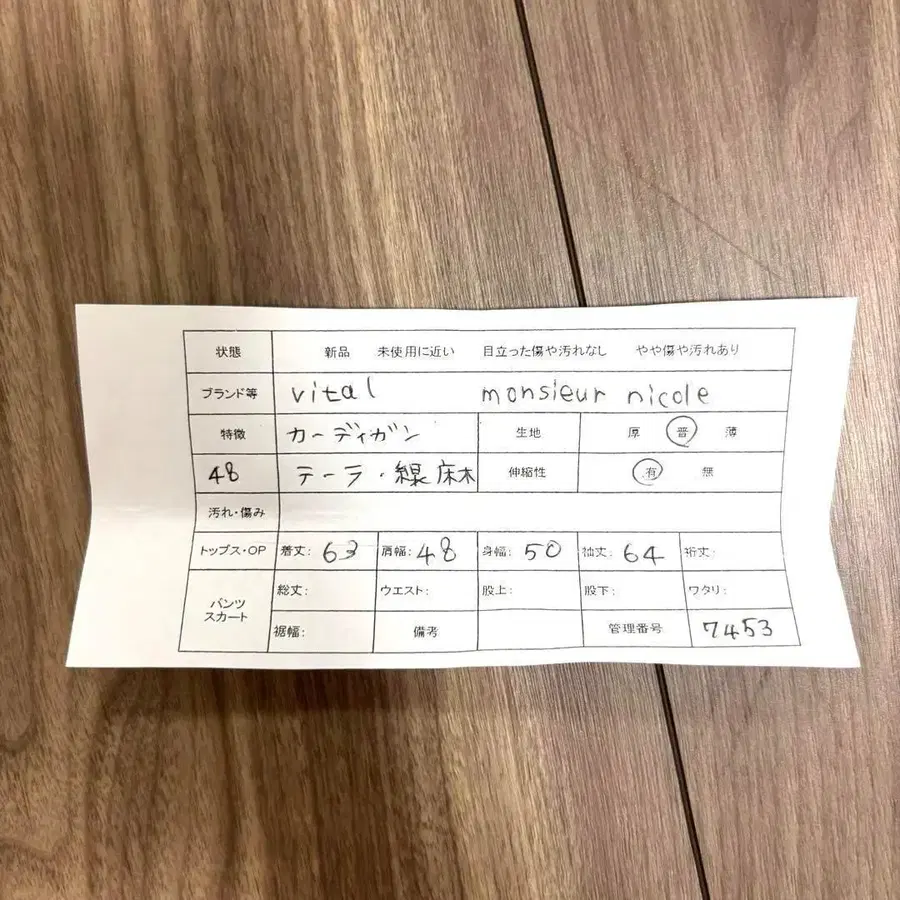 状態 新品 未使用に近い 目立った傷や汚れなし やや傷や汚れあり
ブランド等 vital monsieur nicole
特徴 カーディガン 生地 厚 普 薄
48 テーラ・綿 麻 伸縮性 有 無
汚れ・傷み
トップス・OP 着丈: 63 肩幅: 48 身幅: 50 袖丈: 64 裄丈:
パンツ スカート 総丈: ウエスト: 股上: 股下: ワタリ:
裾幅: 備考 管理番号 7453